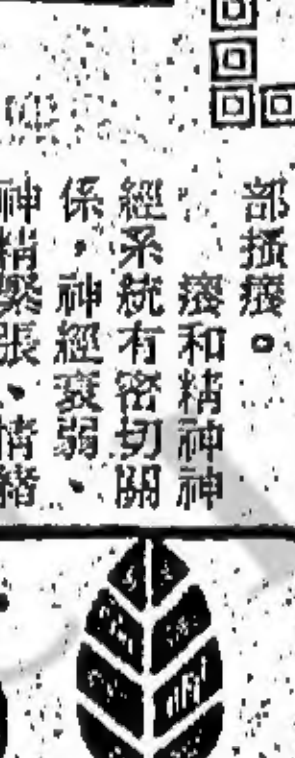 部搔癢。
癢和精神神
經系統有密切關
係，神經衰弱、
神精緊張、情緒